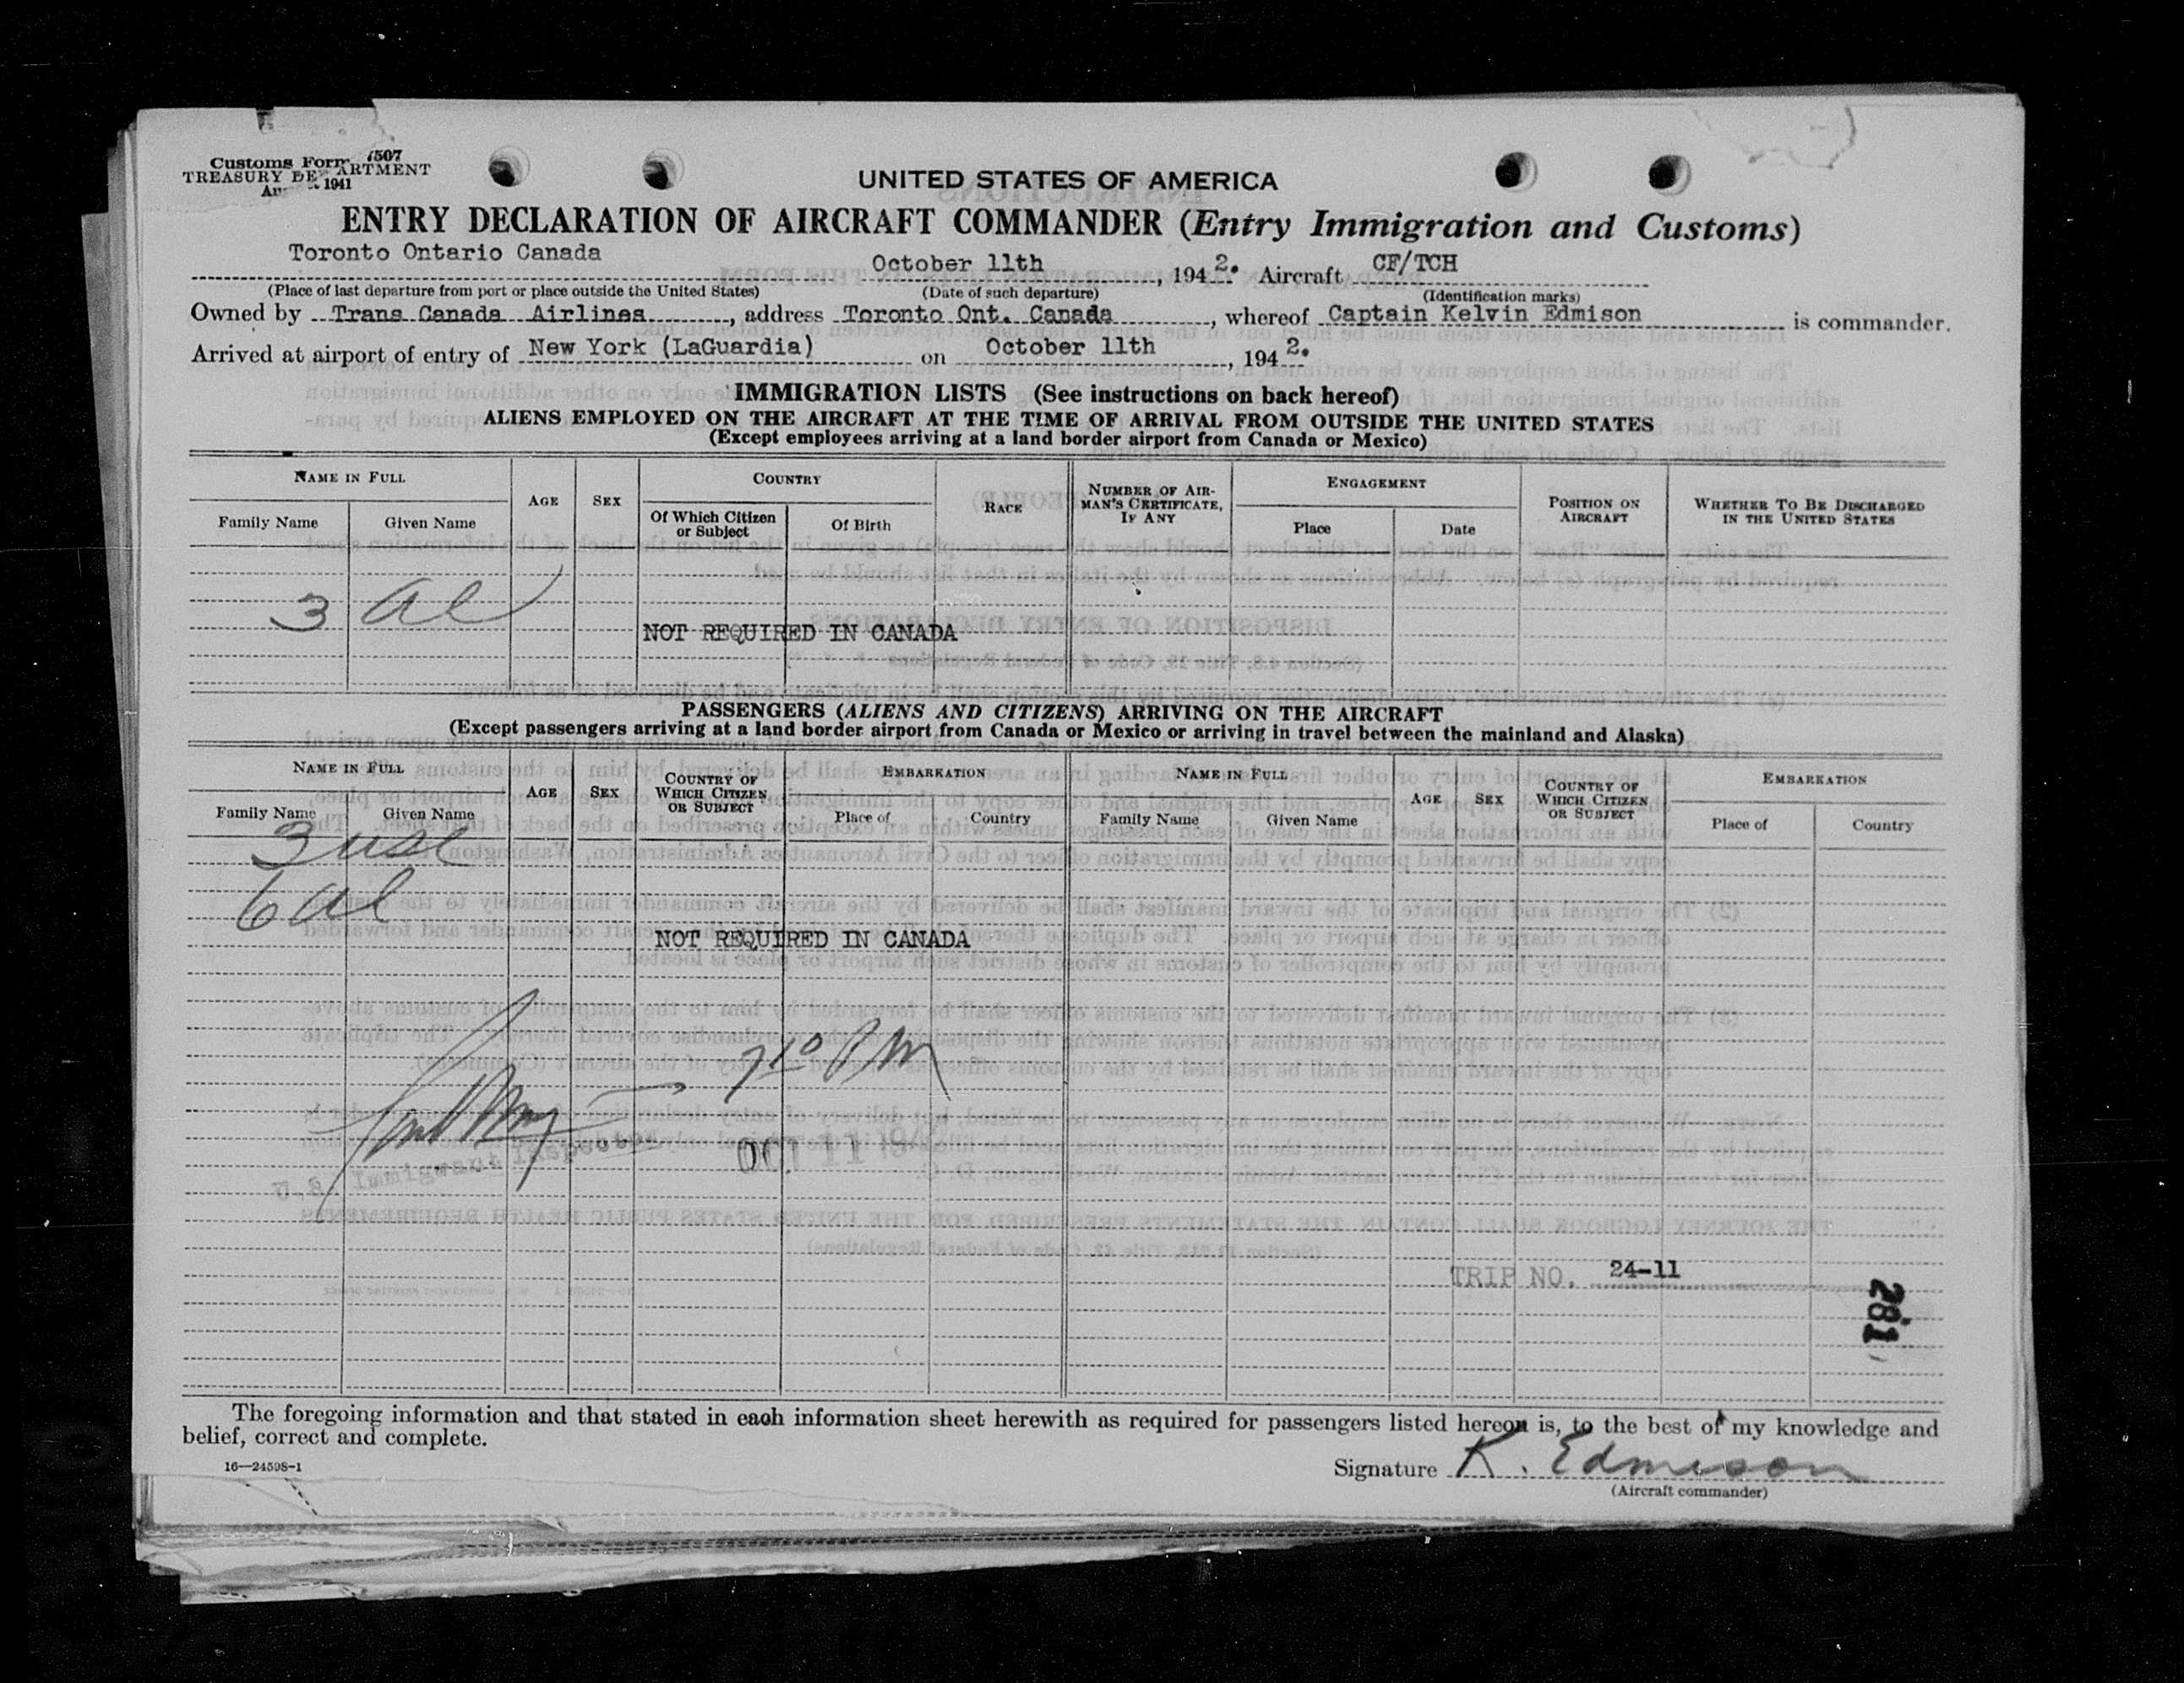 Customs Form 7507
TREASURY DEPARTMENT
1941
UNITED STATES OF AMERICA
ENTRY DECLARATION OF AIRCRAFT COMMANDER (Entry Immigration and Customs)
Toronto Ontario Canada October 11th, 1942. Aircraft CF/TCH
(Place of last departure from port or place outside the United States) (Date of such departure) (Identification marks)
Owned by Trans Canada Airlines, address Toronto Ont. Canada, whereof Captain Kelvin Edmison is commander.
Arrived at airport of entry of New York (LaGuardia) on October 11th, 1942.
IMMIGRATION LISTS (See instructions on back hereof)
ALIENS EMPLOYED ON THE AIRCRAFT AT THE TIME OF ARRIVAL FROM OUTSIDE THE UNITED STATES
(Except employees arriving at a land border airport from Canada or Mexico)
NAME IN FULL AGE SEX COUNTRY RACE NUMBER OF AIRMAN'S CERTIFICATE, IF ANY ENGAGEMENT POSITION ON AIRCRAFT WHETHER TO BE DISCHARGED IN THE UNITED STATES
Family Name Given Name Of Which Citizen or Subject Of Birth Place Date
3 al
NOT REQUIRED IN CANADA
PASSENGERS (ALIENS AND CITIZENS) ARRIVING ON THE AIRCRAFT
(Except passengers arriving at a land border airport from Canada or Mexico or arriving in travel between the mainland and Alaska)
NAME IN FULL AGE SEX COUNTRY OF WHICH CITIZEN OR SUBJECT EMBARKATION NAME IN FULL AGE SEX COUNTRY OF WHICH CITIZEN OR SUBJECT EMBARKATION
Family Name Given Name Place of Country Family Name Given Name Place of Country
3 usc
6 al
NOT REQUIRED IN CANADA
7 10 PM
OCT 11 19
U.S. Immigrant Inspector
TRIP NO. 24-11
281
The foregoing information and that stated in each information sheet herewith as required for passengers listed hereon is, to the best of my knowledge and
belief, correct and complete.
16—24598-1
Signature K. Edmison
(Aircraft commander)